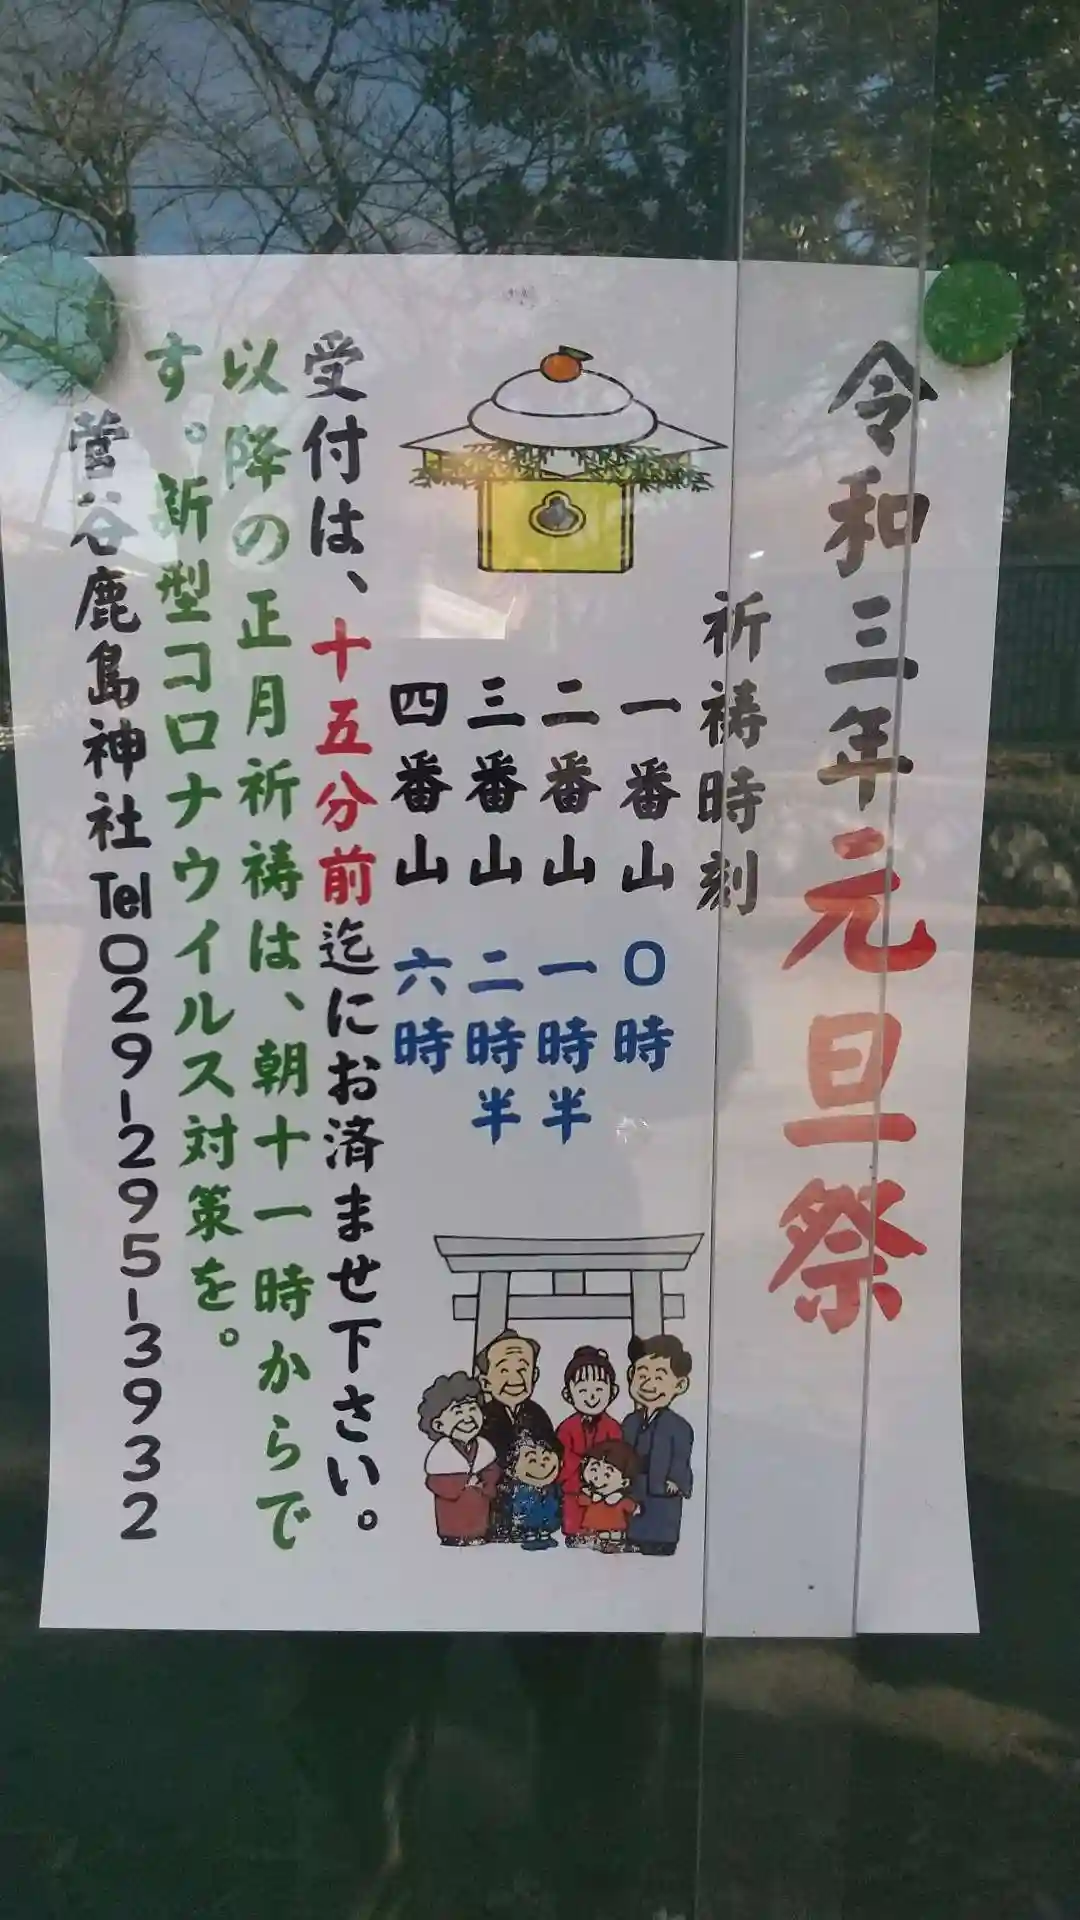 令和三年元旦祭
祈祷時刻
一番山 0時
二番山 一時半
三番山 二時半
四番山 六時
受付は、十五分前迄にお済ませ下さい。
以降の正月祈祷は、朝十一時からで
す。新型コロナウイルス対策を。
菅谷鹿島神社 Tel 029-295-3932